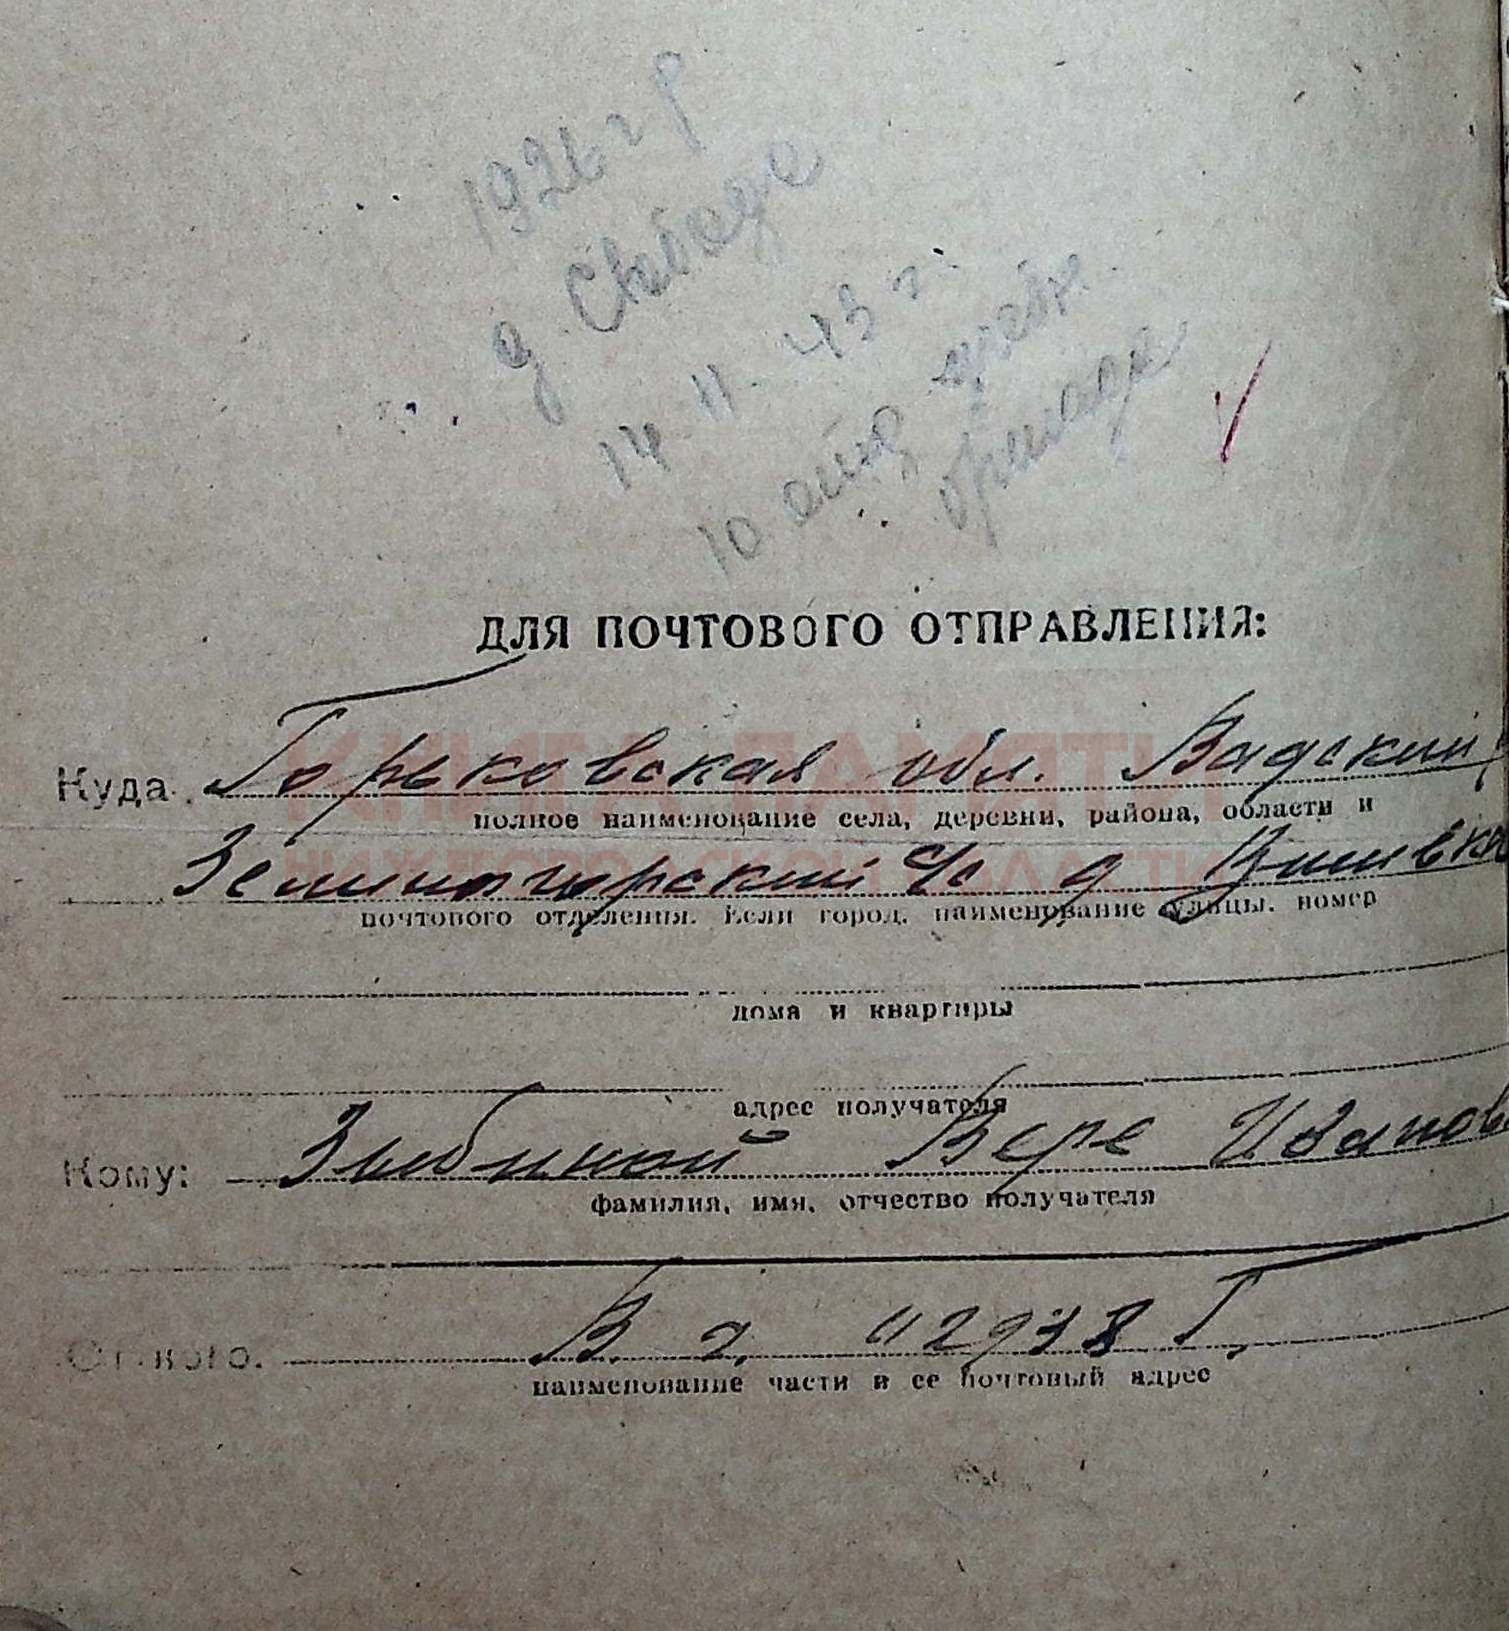 1926 г р
д Свобода
14 11 43 г.
10 отд
бригада
ДЛЯ ПОЧТОВОГО ОТПРАВЛЕНИЯ:
Куда Горьковская обл. Вадский
полное наименование села, деревни, района, области и
КНИГА ПАМЯТИ
НИЖЕГОРОДСКОЙ ОБЛАСТИ
с/с д
почтового отделения. Если город, наименование улицы, номер
дома и квартиры
адрес получателя
Кому: Зыбиной Вере Иванов
фамилия, имя, отчество получателя
От кого. В. г. 02938 Г.
наименование части и ее почтовый адрес